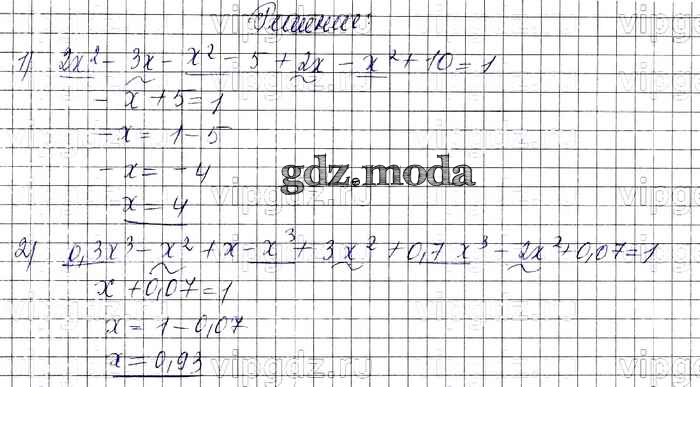 Решение:
1) 2x² - 3x - x² - 5 + 2x - x² + 10 = 1
- x + 5 = 1
- x = 1 - 5
- x = - 4
x = 4
gdz.moda
2) 0,3x³ - x² + x - x³ + 3x² + 0,7x³ - 2x² + 0,07 = 1
x + 0,07 = 1
x = 1 - 0,07
x = 0,93
vipgdz.ru